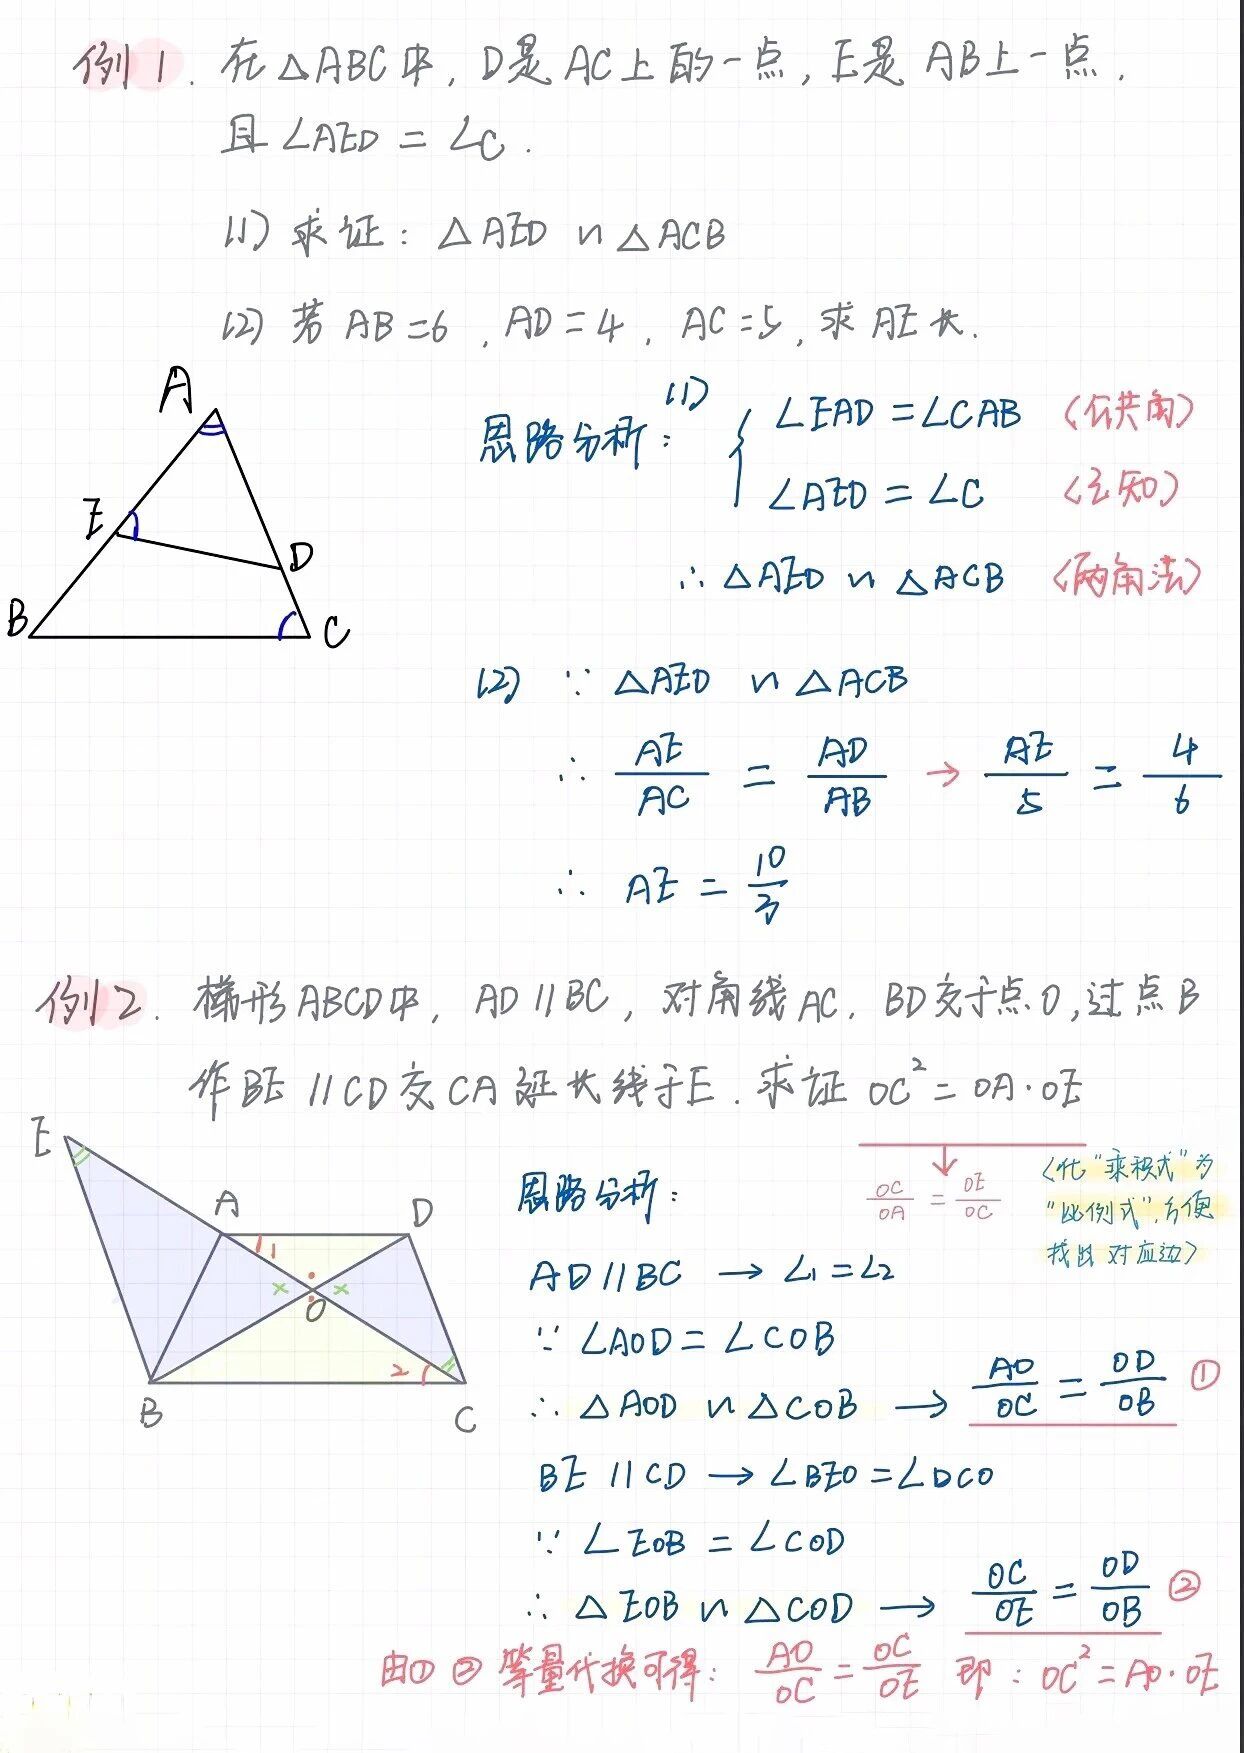 例1. 在△ABC中, D是AC上的一点, E是AB上一点,
且∠AED = ∠C.
(1) 求证: △AED ∽ △ACB
(2) 若AB=6, AD=4, AC=5, 求AE长.
A
E
D
B
C
思路分析:
(1)
∠EAD = ∠CAB (公共角)
∠AED = ∠C (已知)
∴ △AED ∽ △ACB (两角法)
(2) ∵ △AED ∽ △ACB
∴ AE/AC = AD/AB → AE/5 = 4/6
∴ AE = 10/3
例2. 梯形ABCD中, AD∥BC, 对角线AC, BD交于点O, 过点B
作BE∥CD交CA延长线于E. 求证OC² = OA·OE
E
A
D
1
O
2
B
C
OC/OA = OE/OC
(化"乘积式"为
"比例式", 方便
找出对应边)
思路分析:
AD∥BC → ∠1=∠2
∵ ∠AOD = ∠COB
∴ △AOD ∽ △COB → AO/OC = OD/OB ①
BE∥CD → ∠BEO = ∠DCO
∵ ∠EOB = ∠COD
∴ △EOB ∽ △COD → OC/OE = OD/OB ②
由① ② 等量代换可得: AO/OC = OC/OE 即: OC² = AO·OE